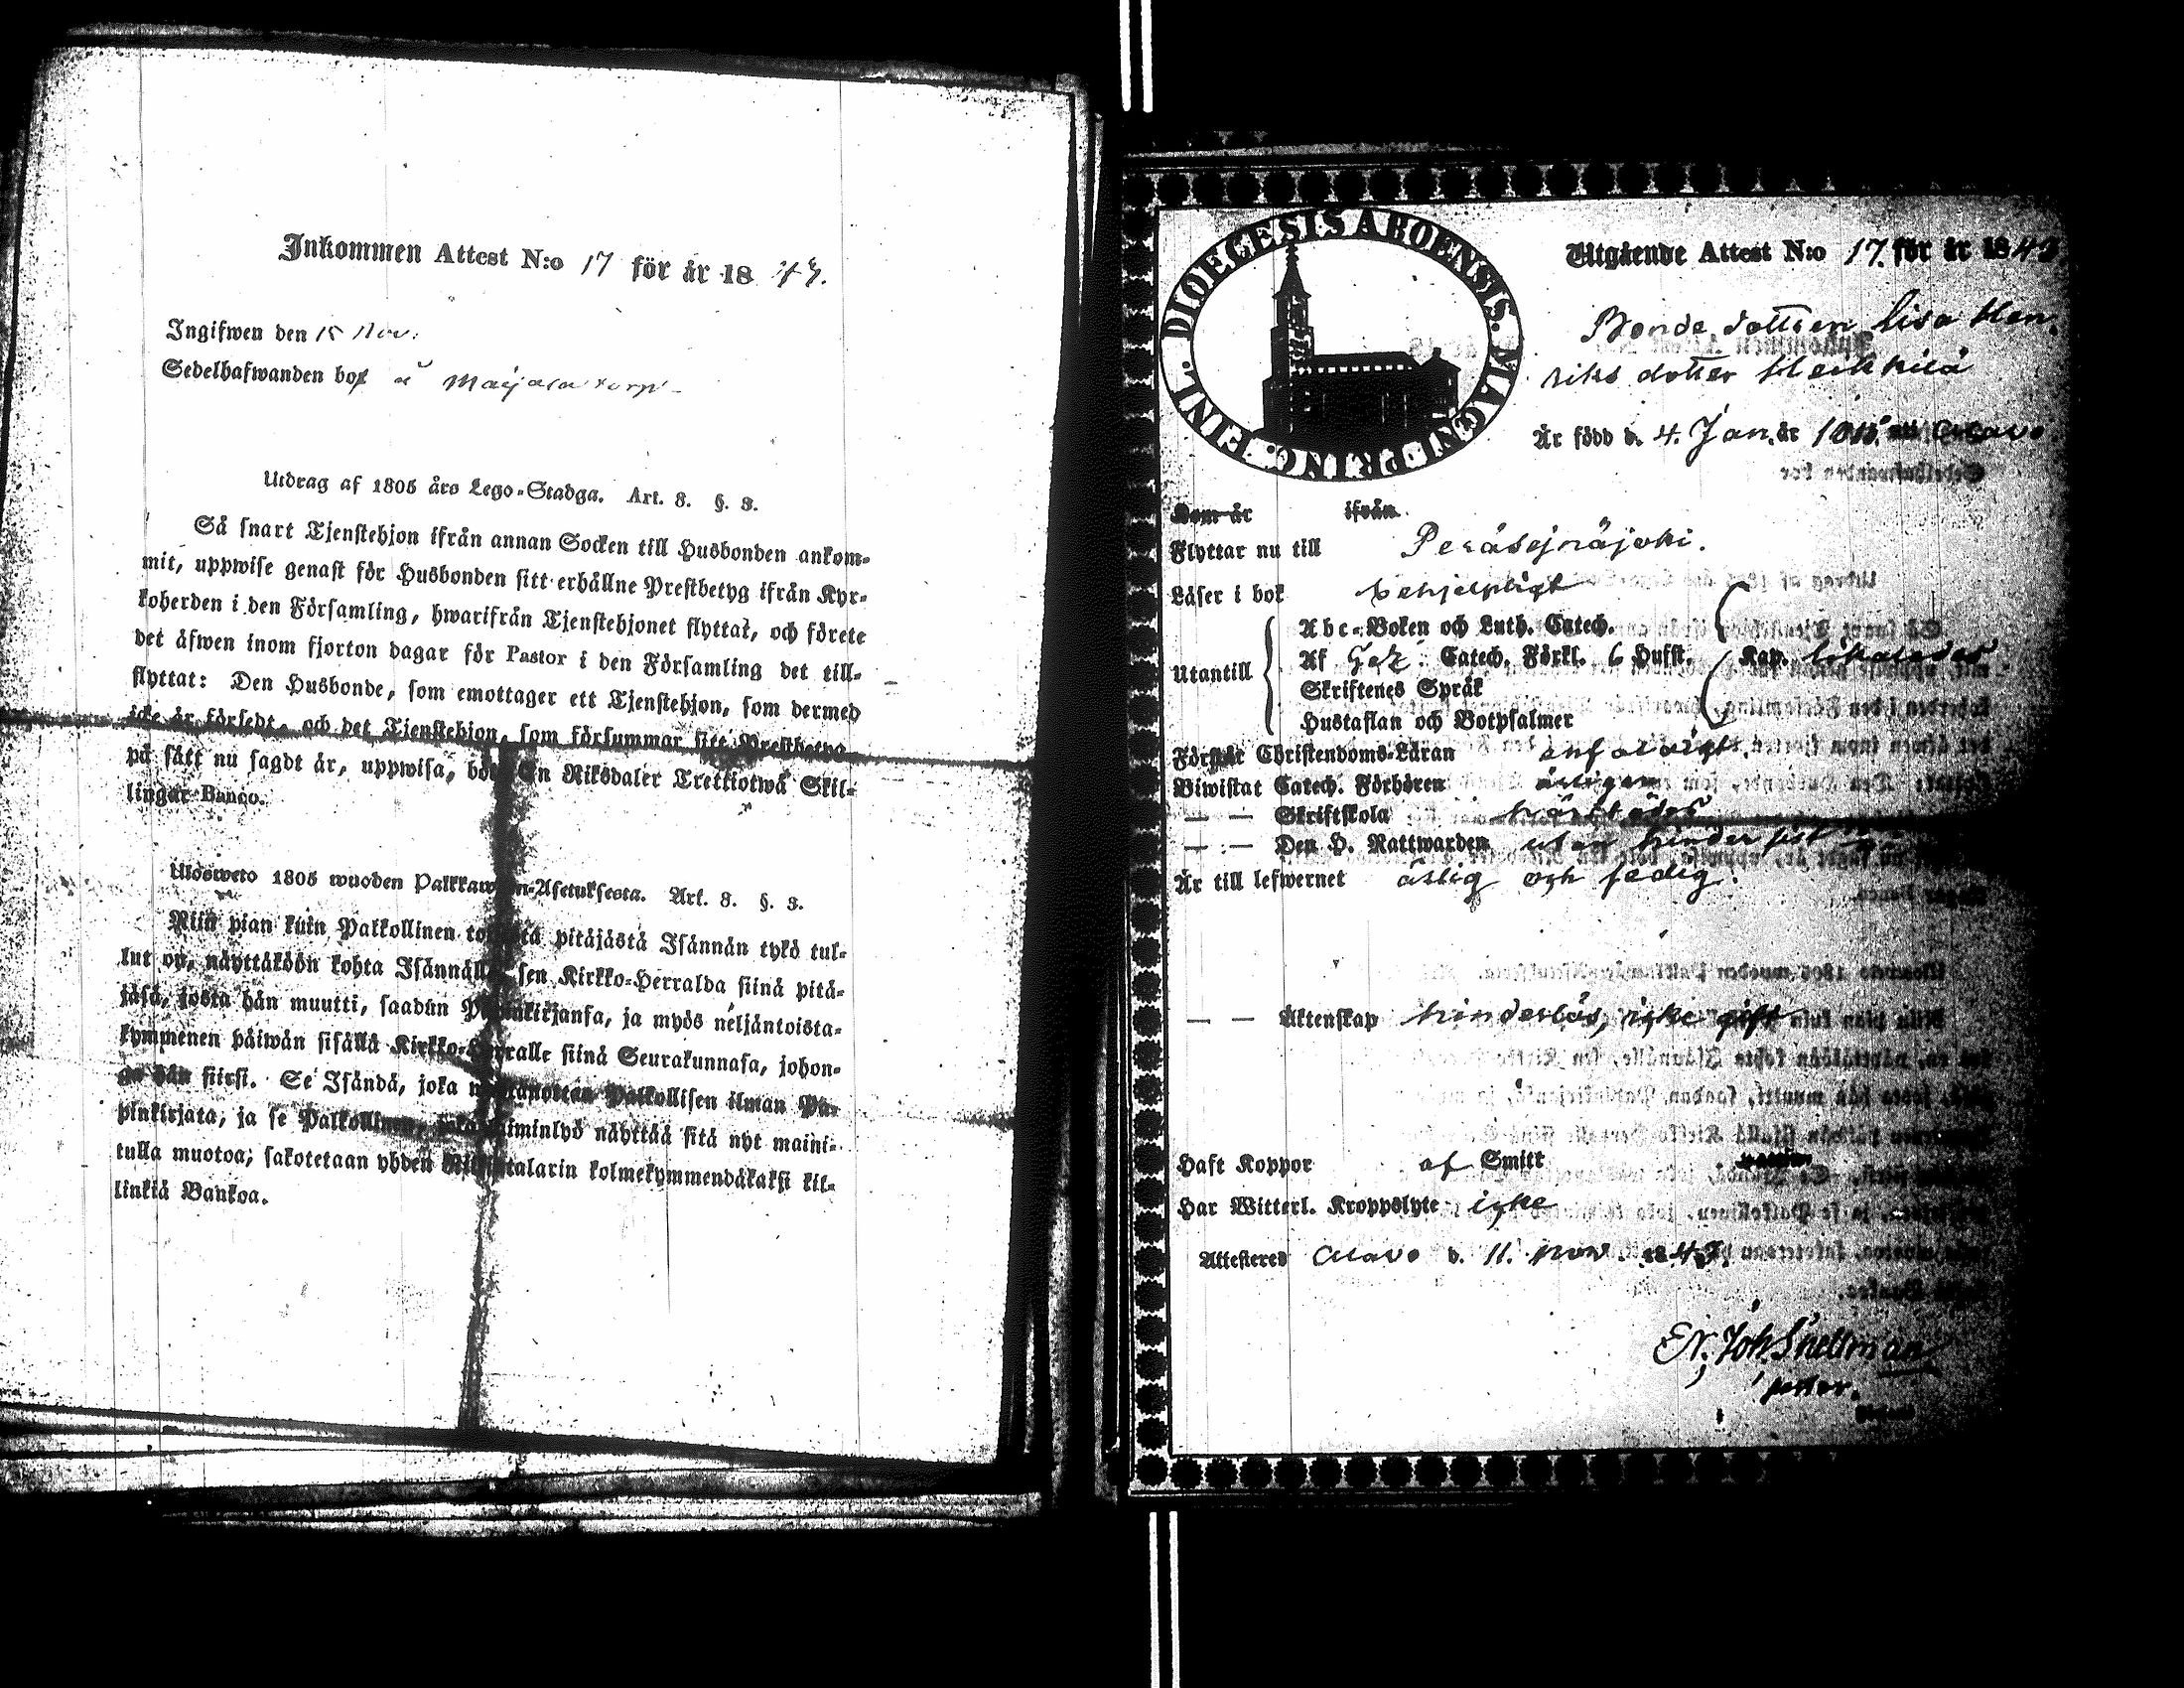 Inkommen Attest N:o 17 för år 1843.
Ingifwen den 15 Nov.
Sedelhafwanden bor å Marjala torp
Utdrag af 1805 års Lego-Stadga. Art. 8. §. 3.
Så snart Tjenstehjon ifrån annan Socken till Husbonden ankom-
mit, uppwise genast för Husbonden sitt erhållne Prestbetyg ifrån Kyr-
koherden i den Församling, hwarifrån Tjenstehjonet flyttat, och förete
det äfwen inom fjorton dagar för Pastor i den Församling det till-
flyttat: Den Husbonde, som emottager ett Tjenstehjon, som dermed
icke är försedt, och det Tjenstehjon, som försummar sitt Prestbetyg
på sätt nu sagdt är, uppwisa, böte En Riksdaler Trettiotwå Skil-
lingar Banco.
Ulosweto 1805 wuoden Palkkawäen-Asetuksesta. Art. 8. §. 3.
Niin pian kuin Palkollinen toisesta pitäjästä Isännän tykö tul-
lut on, näyttäköön kohta Isännälle sen Kirkko-Herralda siinä pitä-
jäsä, josta hän muutti, saadun Papinkirjansa, ja myös neljäntoista-
kymmenen päiwän sisällä Kirkko-Herralle siinä Seurakunnasa, johon-
ga hän siirsi. Se Isändä, joka Palkollisen ilman Pa-
pinkirjata, ja se Palkollinen, joka laiminlyö näyttää sitä nyt maini-
tulla muotoa; sakotetaan yhden Riksitalarin kolmekymmendäkaksi kil-
linkiä Bankoa.
DIOECESIS ABOENSIS. MAGNI PRINC. FINL.
Utgående Attest N:o 17. för år 1843
Bonde dottren Lisa Hen-
riks dotter Heikkilä
Är född d. 4. Jan. år i Alavo
Kom år ifrån
Flyttar nu till Peräsejnäjoki.
Läser i bok behjelpligt
Utantill
Abc-Boken och Luth. Catech.
Af Catech. Förkl. 6 Hufst. Kap. likaledes
Skriftenes Språk
Hustaflan och Botpsalmer
Förstår Christendoms-Läran enfaldigt.
Biwistat Catech. Förhören årligen
— — Skriftskola härstädes
— — Den H. Nattwarden utan hinder
Är till lefwernet ärlig och sedig.
— — Äktenskap hinderlös, icke gift
Haft Koppor af Smitt
Har Witterl. Kroppslyte icke
Attesteres Alavo d. 11. Nov. 1843.
Joh Snellman
pastor.